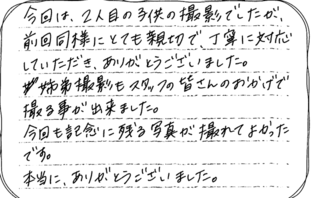 今回は、2人目の子供の撮影でしたが、
前回同様にとても親切で、丁寧に対応
していただき、ありがとうございました。
姉弟撮影もスタッフの皆さんのおかげで
撮る事が出来ました。
今回も記念に残る写真が撮れてよかった
です。
本当に、ありがとうございました。